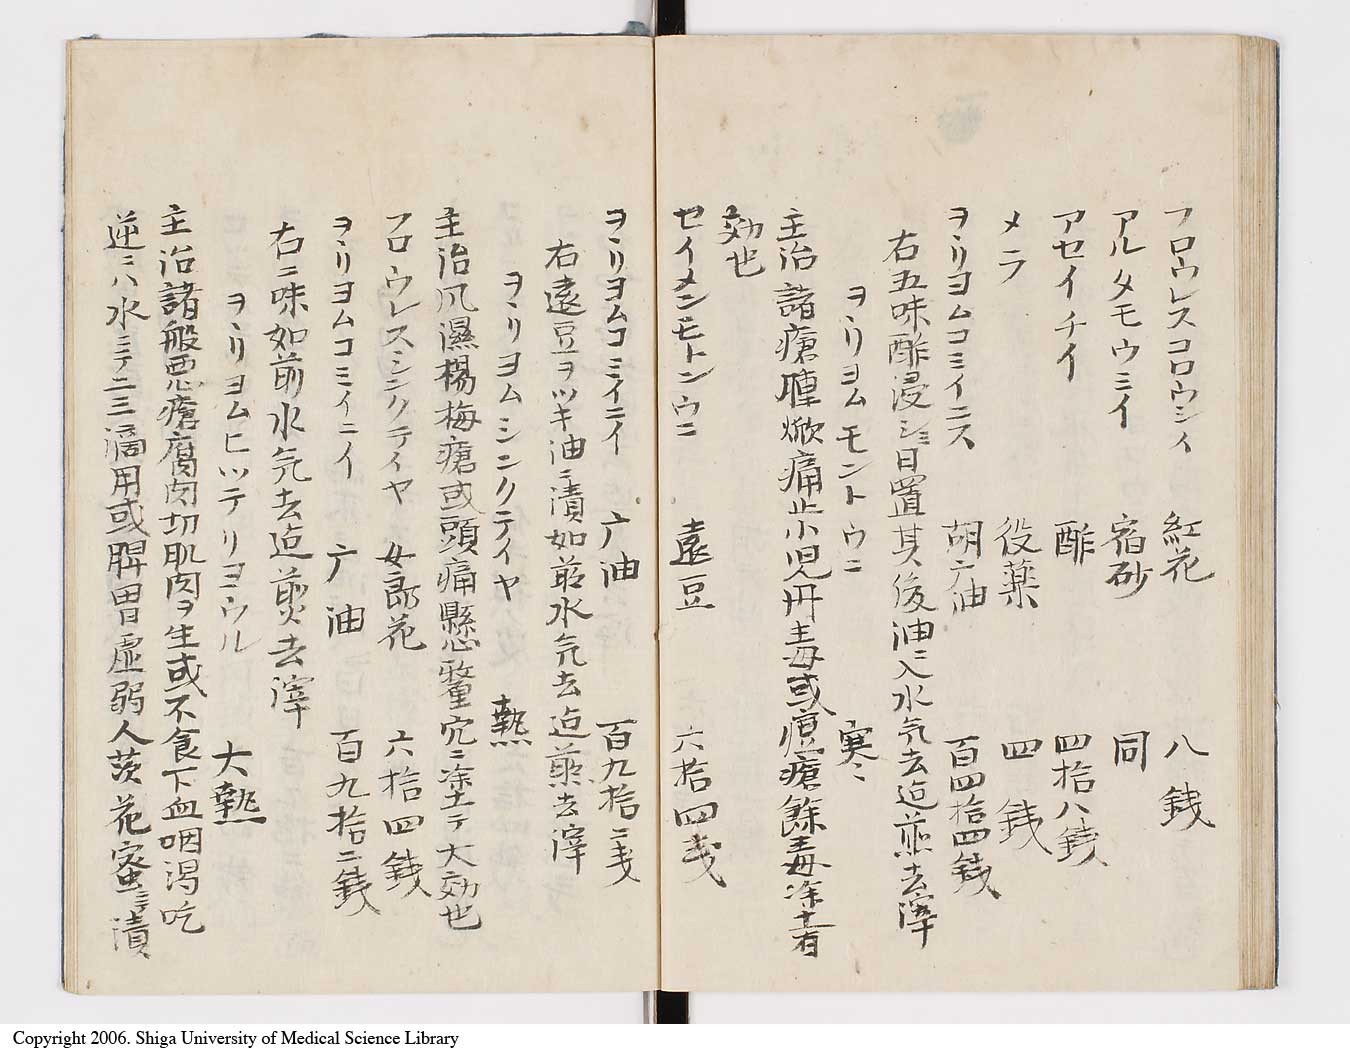 フロウレスコロウシイ 紅花 八銭
アルタモウミイ 宿砂 同
アセイチイ 酢 四拾八銭
メラ 役薬 四銭
ヲヽリヨムコミイニス 胡广油 百四拾四銭
右五味酢浸シ三日置其後油ニ入水気去迠煎去滓
ヲヽリヨムモントウニ 寒ニ
主治諸瘡腫焮痛止小児丹毒或瘡餘毒塗有
効也
セイメンモトンウニ 遠豆 六拾四戋
ヲヽリヨムコミイニイ 广油 百九拾二戋
右遠豆ヲツキ油ニ漬如前水気去迠煎去滓
ヲヽリヨムシンクテイヤ 熱
主治風濕楊梅瘡或頭痛懸穴ニ塗テ大効也
フロウレスシンクテイヤ 女郎花 六拾四銭
ヲヽリヨムコミイニイ 广油 百九拾二銭
右二味如前水気去迠煎去滓
ヲヽリヨムヒツテリヨウル 大熱
主治諸般悪瘡腐肉切肌肉ヲ生或不食下血咽渇吃
逆ニハ水ニテ二三滴用或脾胃虚弱人茨花蜜漬
Copyright 2006. Shiga University of Medical Science Library